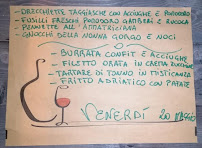 - ORECCHIETTE TAGGIASCHE CON ACCIUGHE E POMODORO
- FUSILLI FRESCHI POMODORO GAMBERI E RUCOLA
- PENNETTE ALL'AMATRICIANA
- GNOCCHI DELLA NONNA GORGO E NOCI
- BURRATA CONFIT E ACCIUGHE
- FILETTO ORATA IN CREMA ZUCCHINE
- TARTARE DI TONNO IN MISTICANZA
- FRITTO ADRIATICO CON PATATE
VENERDÌ 20 MAGGIO